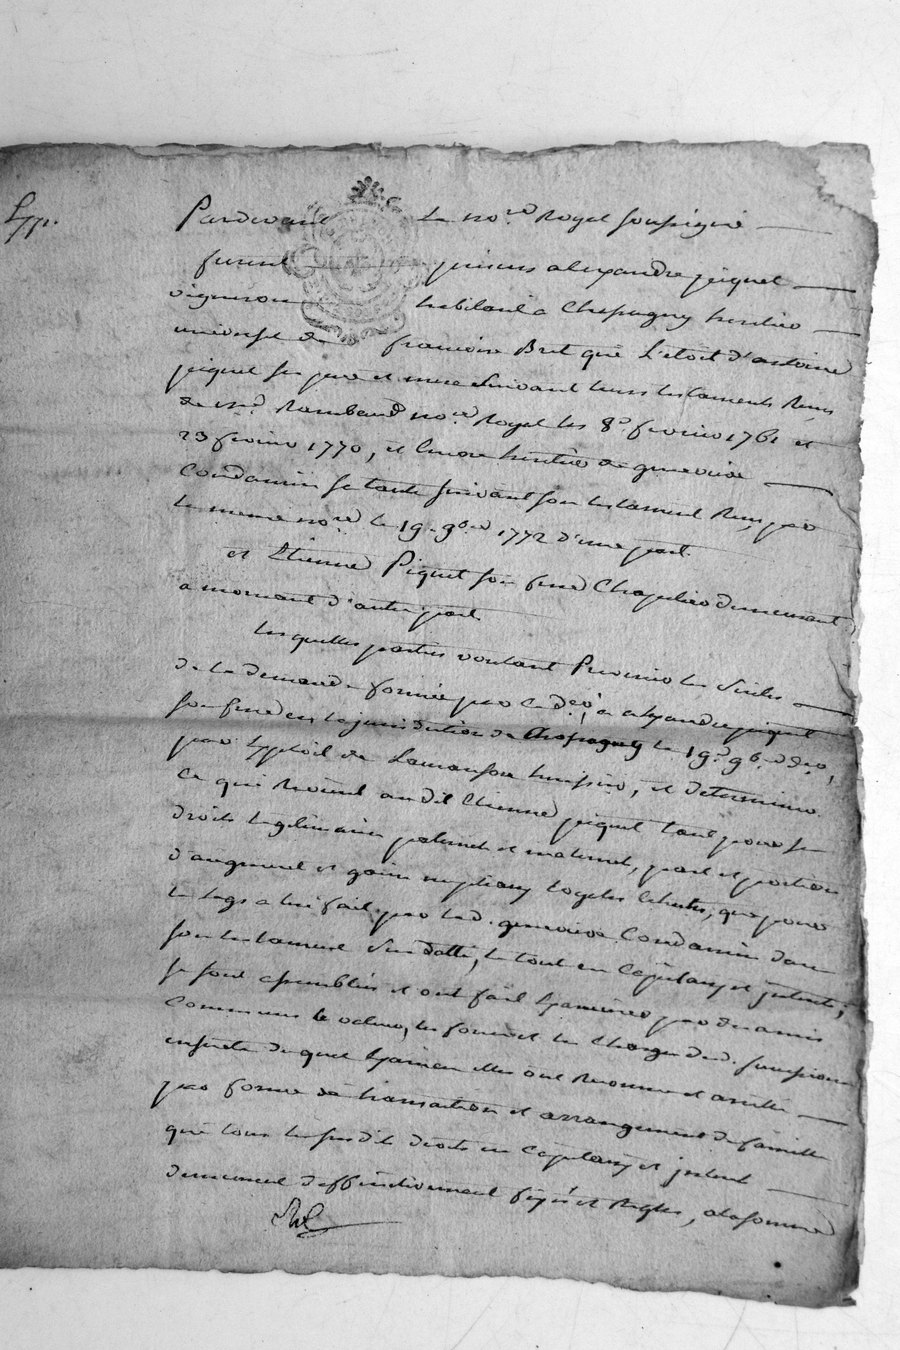 Pardevant Le no.re Royal soussigné
furent presens alexandre piquet
vigneron habitant a Chepagny heritier
universel de francoise Bret que L'étoit d'antoine
piquet ses pere et mere suivant leurs testaments Reçus
de m.e Rambaud no.re Royal les 8.e fevrier 1761 et
23 fevrier 1770, et Encore heritier de genevieve
Condamin sa tante suivant son testament Reçu par
le meme no.re le 19. 9bre 1772 d'une part
et Etienne Piquet son frere Chapelier demeurant
a mornant d'autre part
Les quelles parties voulant Prevenir les suites
de la demande formée par led. a alexandre piquet
son frere en la jurisdiction de Chepagny le 19.e 9bre d.er,
par Exploit de Lamansse huissier, et determiner
Ce qui Revient audit Etienne piquet tant pour ses
droits legitimaires paternels et maternels, part et portion
d'augment et gains nuptiaux que pour
le legs a lui fait par lad. genevieve Condamin dans
son testament susdatté, le tout en Capitaux et interets,
se sont assemblés et ont fait Examiner par des amis
Communs la valeur, les forces et les Charges desd. successions
ensuite du quel Examen elles ont Reconnu et arreté
par forme de transaction et arrangement de famille
que tous les susdits droits en Capitaux et interets
demeurent deffinitivement fixés et Reglés, a la somme